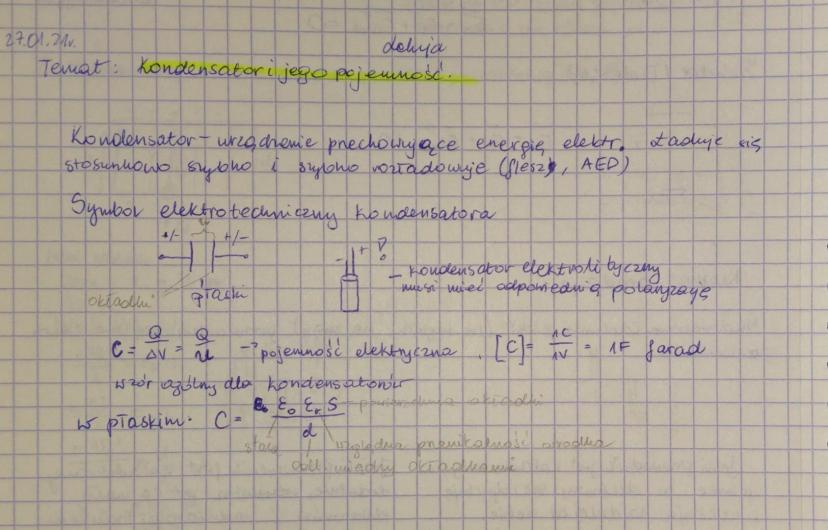 27.01.21r.
lekcja
Temat: Kondensator i jego pojemność.
Kondensator – urządzenie przechowujące energię elektr. Ładuje się
stosunkowo szybko i szybko rozładowuje (flesz, AED)
Symbol elektrotechniczny kondensatora
+/- +/-
- + ?!
okładki płaski
– kondensator elektrolityczny
musi mieć odpowiednią polaryzację
C = Q/ΔV = Q/U → pojemność elektryczna. [C] = 1C/1V = 1F farad
wzór ogólny dla kondensatorów
w płaskim: C = ε₀ εᵣ S / d
powierzchnia okładki
stała względna przenikalność ośrodka
odl. między okładkami